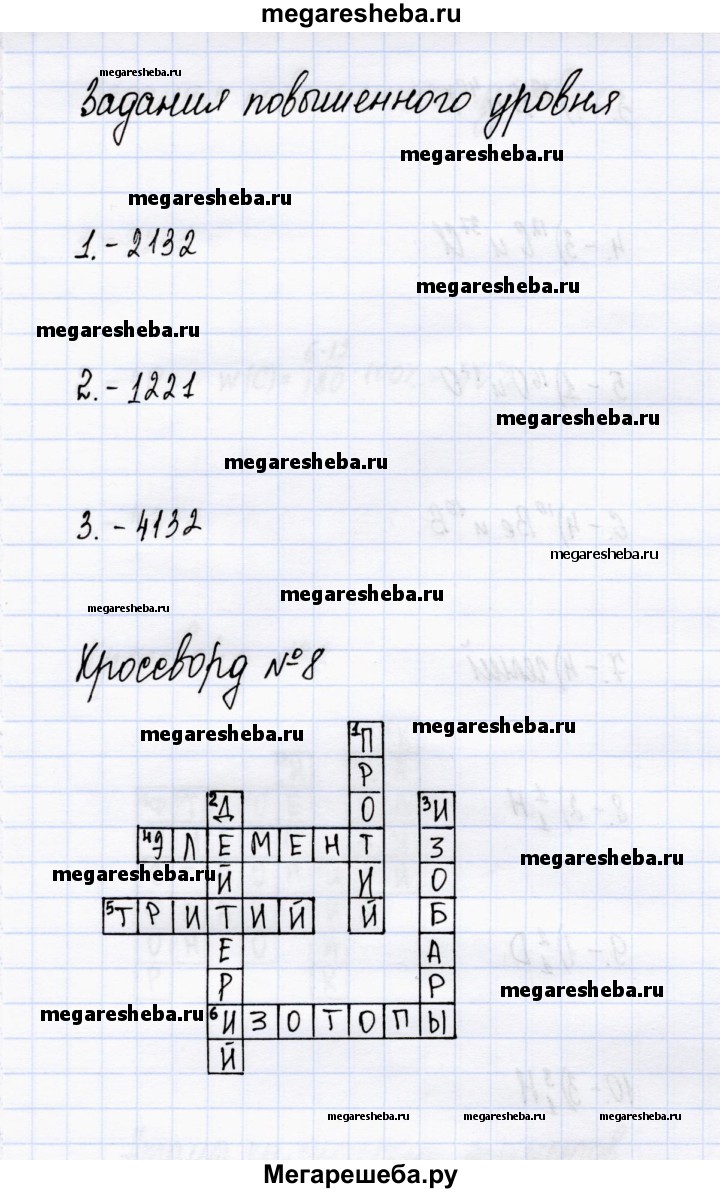 megaresheba.ru
megaresheba.ru
Задания повышенного уровня
megaresheba.ru
megaresheba.ru
1. - 2132
megaresheba.ru
megaresheba.ru
2. - 1221
megaresheba.ru
megaresheba.ru
3. - 4132
megaresheba.ru
megaresheba.ru
megaresheba.ru
Кроссворд №8
megaresheba.ru
megaresheba.ru
1 ПРОТИЙ
2 ДЕЙТЕРИЙ
3 ИЗОБАРЫ
4 ЭЛЕМЕНТ
megaresheba.ru
megaresheba.ru
5 ТРИТИЙ
megaresheba.ru
megaresheba.ru
6 ИЗОТОПЫ
megaresheba.ru
megaresheba.ru
megaresheba.ru
Мегарешеба.ру